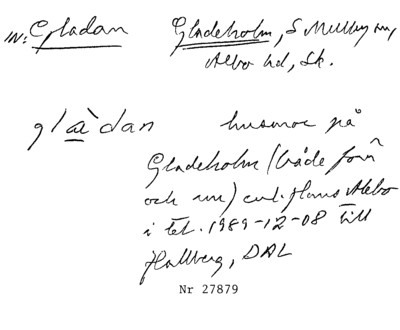 m: Gladan Gladeholm, S Mellby sn,
Albo hd, Sk.
gla`dan husmor på
Gladeholm (både förn
och nu) enl. Hans Alebo
i tel. 1989-12-08 till
Hallberg, DAL
Nr 27879